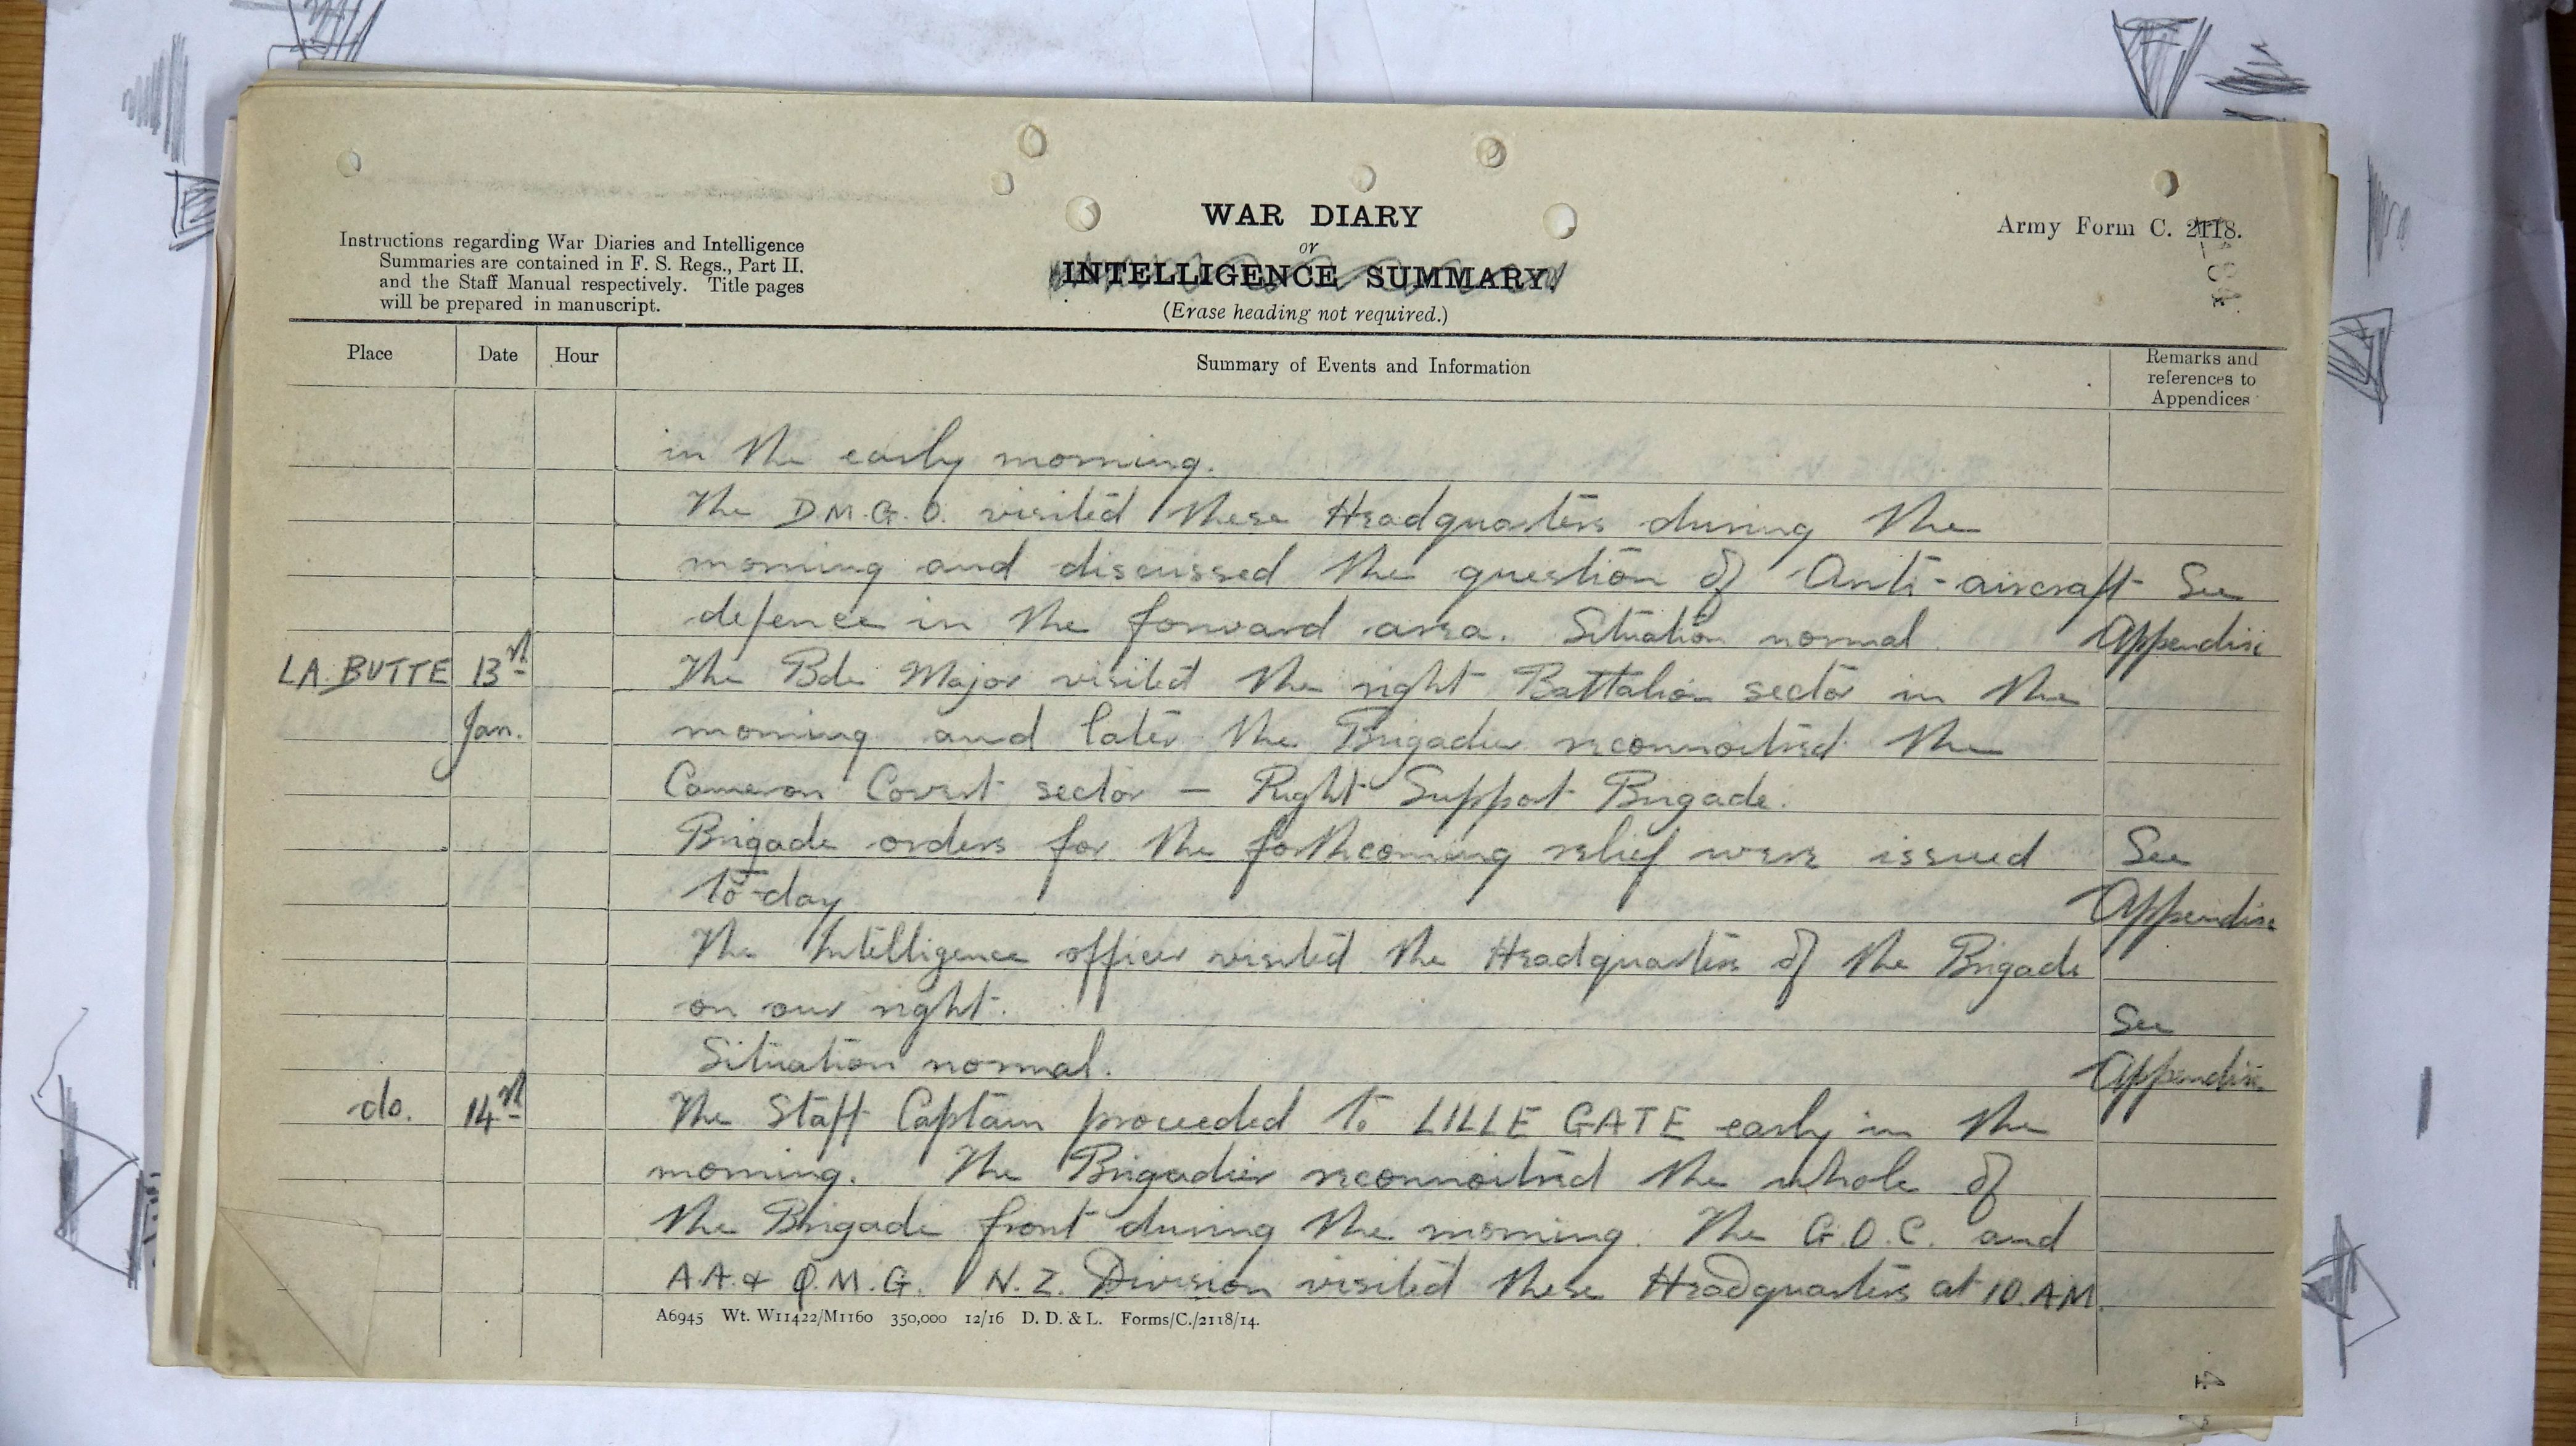 WAR DIARY
or
INTELLIGENCE SUMMARY.
(Erase heading not required.)
Army Form C. 2118.
Instructions regarding War Diaries and Intelligence
Summaries are contained in F. S. Regs., Part II.
and the Staff Manual respectively. Title pages
will be prepared in manuscript.
Place Date Hour Summary of Events and Information Remarks and
references to
Appendices
in the early morning.
The D.M.G.O. visited these Headquarters during the
morning and discussed the question of Anti-aircraft See
defence in the forward area. Situation normal. Appendix
LA BUTTE 13th The Bde Major visited the right Battalion sector in the
Jan. morning and later the Brigadier reconnoitred the
Cameron Covert sector – Right Support Brigade.
Brigade orders for the forthcoming relief were issued See
to-day Appendix
The Intelligence officer visited the Headquarters of the Brigade
on our right. See
Situation normal. Appendix
do. 14th The Staff Captain proceeded to LILLE GATE early in the
morning. The Brigadier reconnoitred the whole of
the Brigade front during the morning. The G.O.C. and
A.A. & Q.M.G. N.Z. Division visited these Headquarters at 10.A.M.
A6945 Wt. W11422/M1160 350,000 12/16 D. D. & L. Forms/C./2118/14.
4